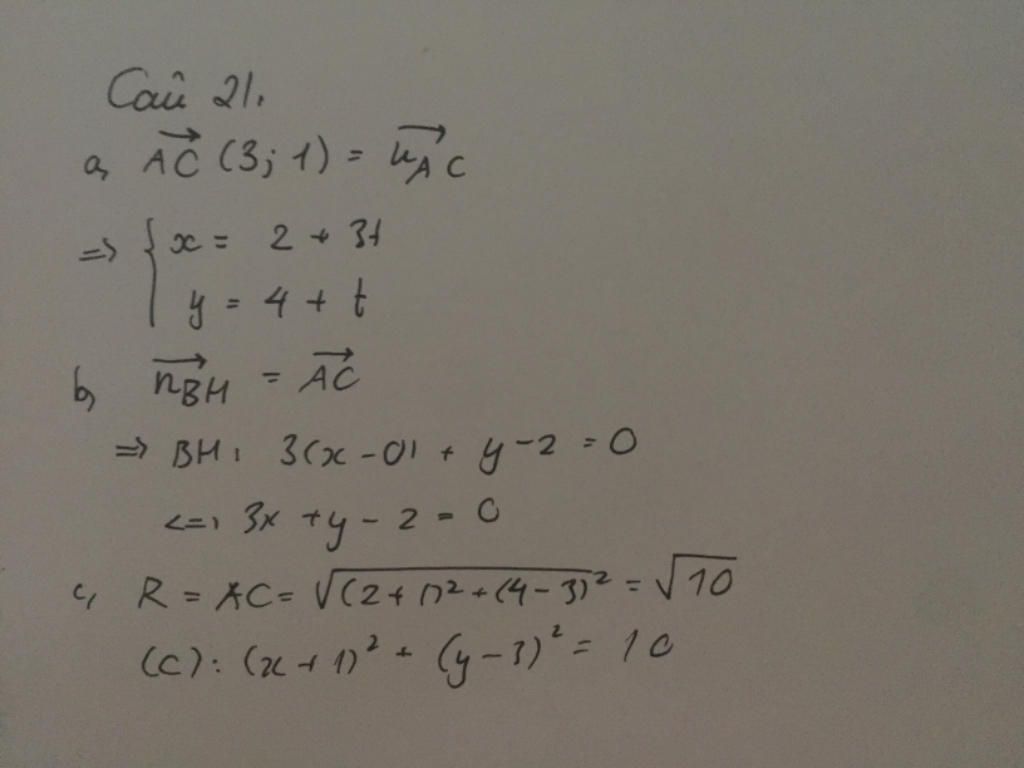 Câu 21.
a, \overrightarrow{AC} (3; 1) = \overrightarrow{u_{AC}}
=> { x = 2 + 3t
y = 4 + t
b, \overrightarrow{n_{BH}} = \overrightarrow{AC}
=> BH: 3(x - 0) + y - 2 = 0
<=> 3x + y - 2 = 0
c, R = AC = √((2+1)² + (4-3)²) = √10
(C): (x + 1)² + (y - 3)² = 10